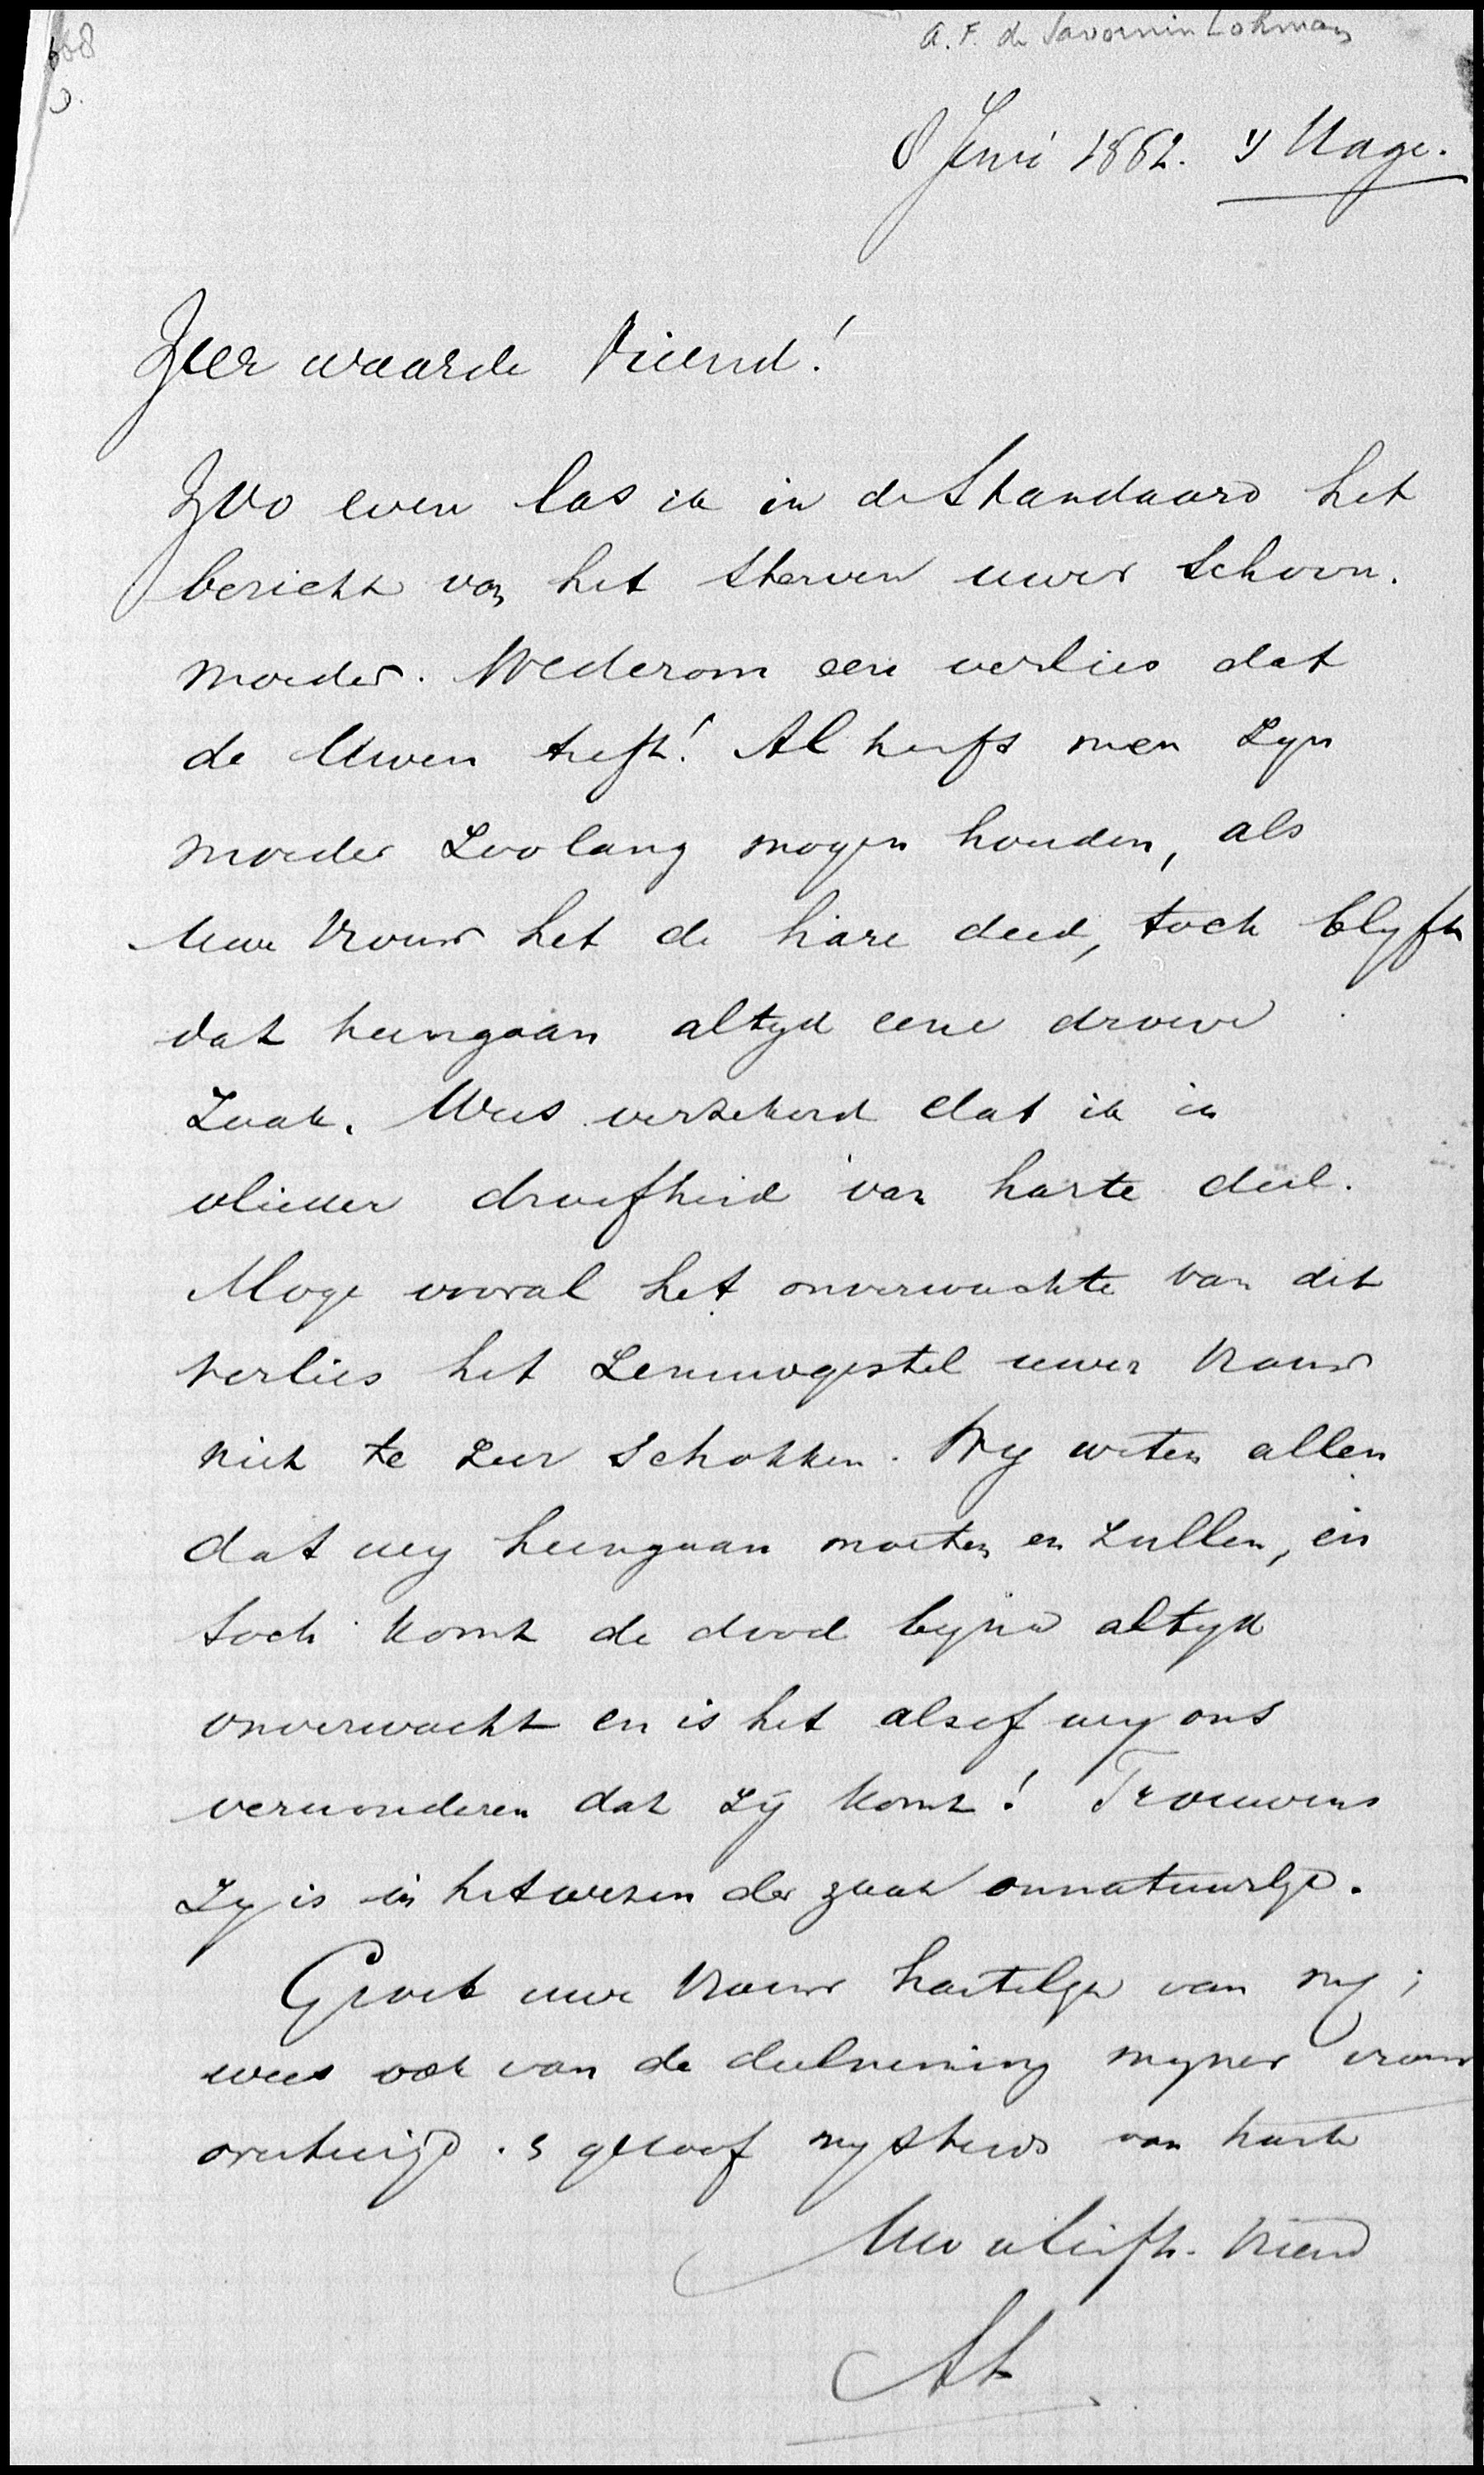 A. F. de Savornin Lohman
8 Juni 1882. 's Hage.
Zeer waarde Vriend!
Zoo even las ik in de Standaard het
bericht van het sterven uwer Schoon.
moeder. Wederom een verlies dat
de Uwen treft! Al heeft men zyn
moeder zoolang mogen houden, als
Uwe Vrouw het de hare deed, toch blyft
dat heengaan altyd eene droeve
Zaak. Wees verzekerd dat ik in
ulieder droefheid van harte deel.
Moge vooral het onverwachte van dit
verlies het Zenuwgestel uwer Vrouw
niet te zeer schokken. Wy weten allen
dat wy heengaan moeten en zullen, en
toch komt de dood byna altyd
onverwacht en is het alsof wy ons
verwonderen dat zy komt! Trouwens
Zy is in het wezen der zaak onnatuurlyk.
Groet uwe Vrouw hartelyk van my;
wees ook van de deelneming myner vrouw
overtuigd. & geloof my steeds van harte
Uw liefh. Vriend
AL